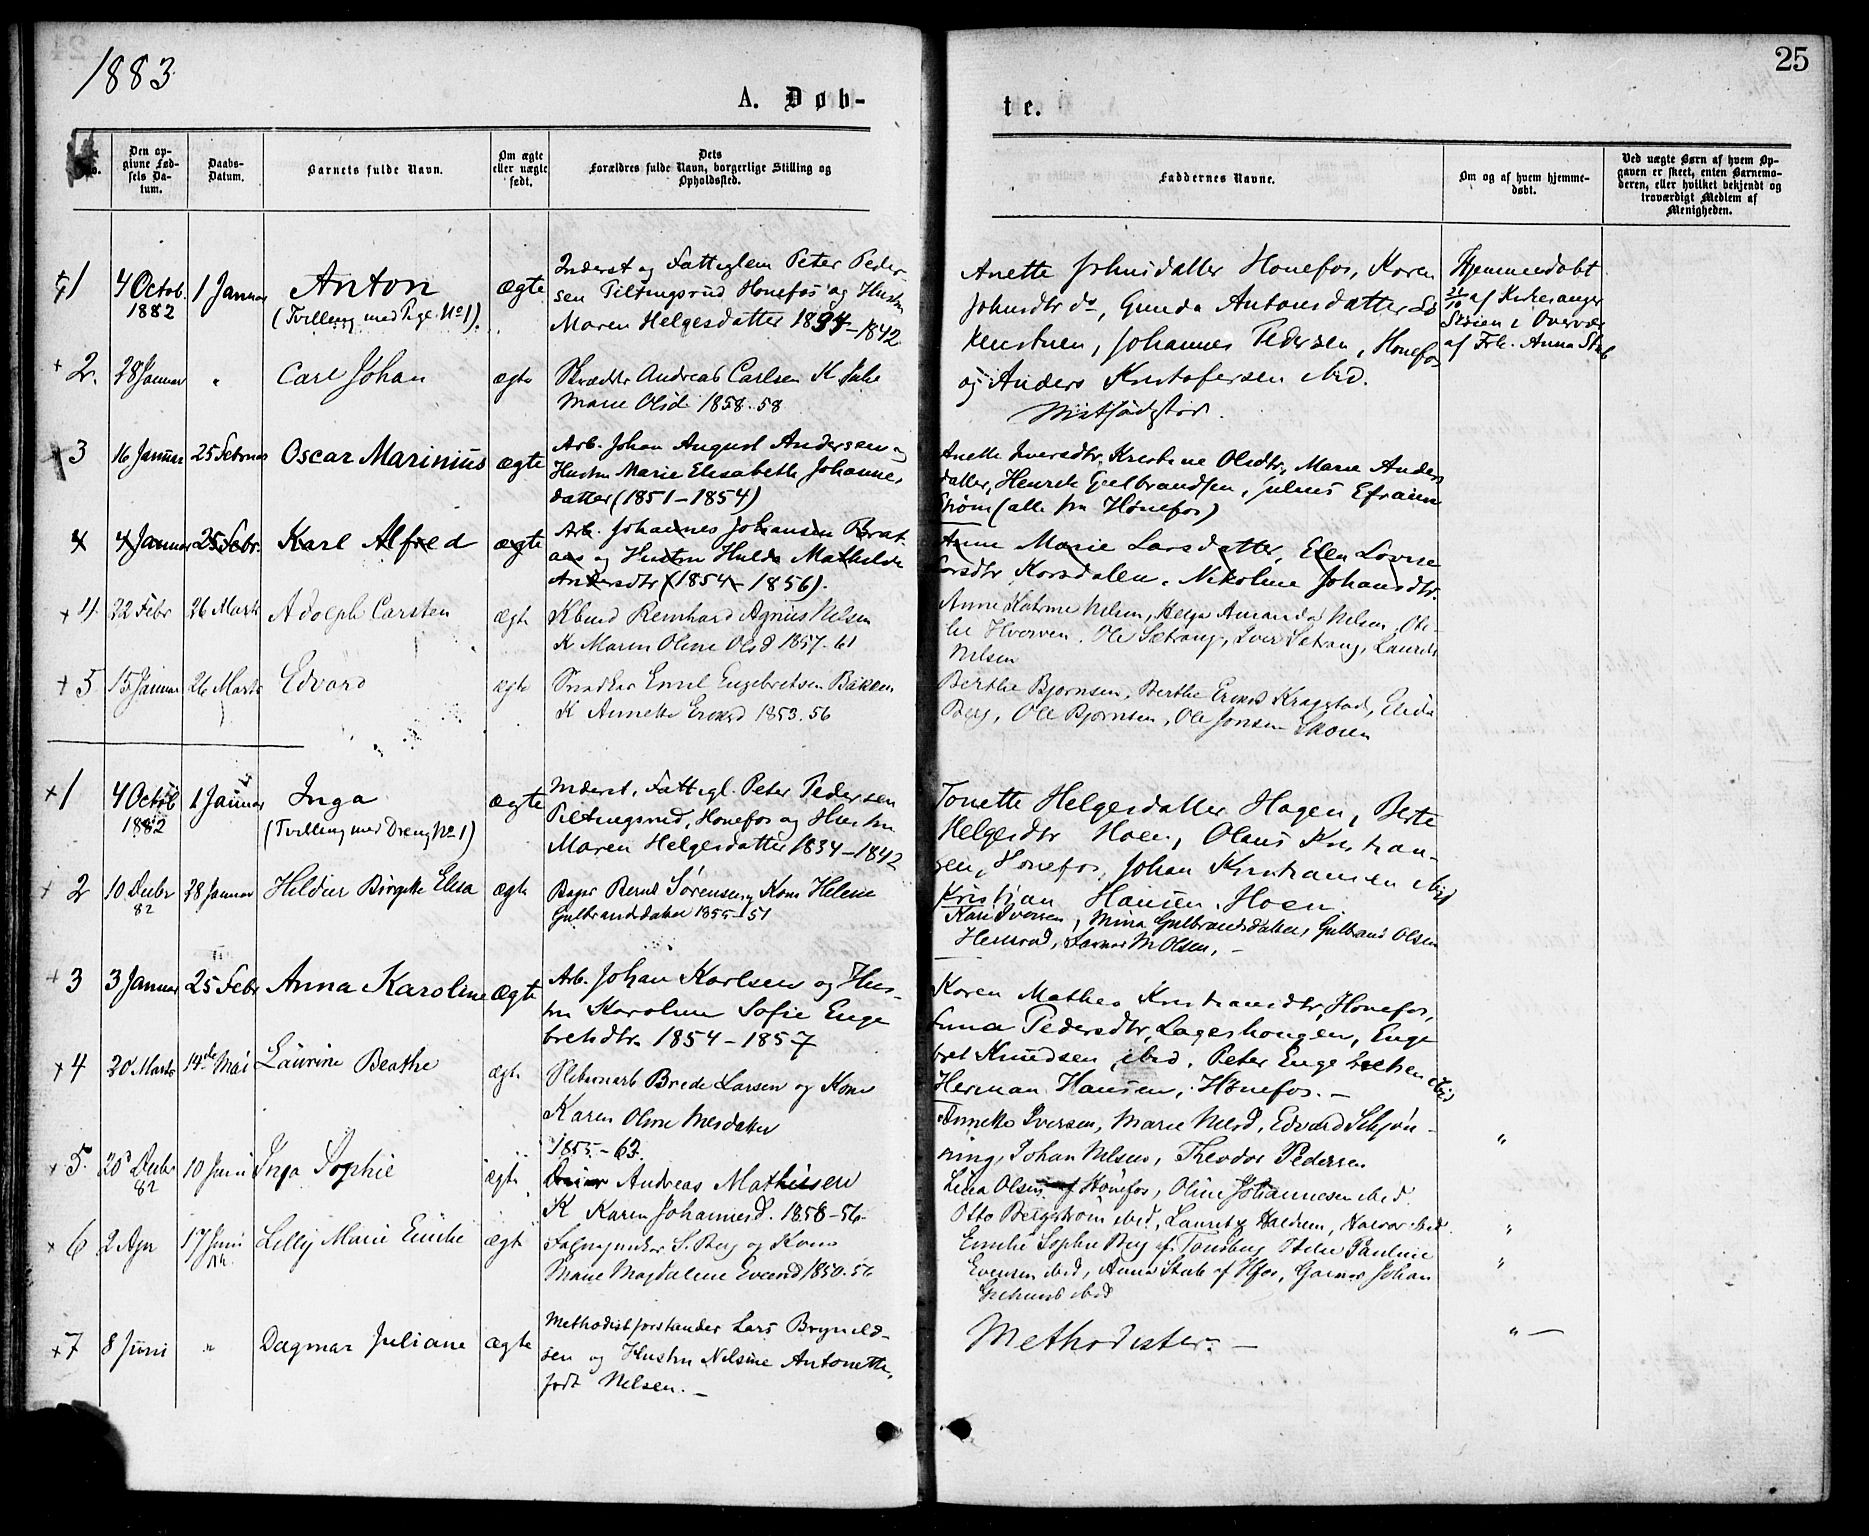 1883
25
A. Døb-
te.
No.
Den op-
givne Fød-
sels Da-
tum.
Daabs-
Datum.
Barnets fulde Navn.
Om ægte
eller uægte
født.
Dets
Forældres fulde Navn, borgerlige Stilling og
Opholdssted.
Faddernes Navne.
Om og af hvem hjemme-
døbt.
Ved uægte Børn af hvem Op-
gaven er skeet, enten Barnemo-
deren, eller hvilket bekjendt og
troværdigt Medlem af
Menigheden.
1 4 Octob. 1 Januar Anton ægte Inderst og Fattiglem Peter Peder-
1882 (Tvilling med Pige No 1). sen Piltingsrud Hønefos og Hustru
Maren Helgesdatter 1834-1842
Anette Johnsdatter Hønefos, Karen
Johnsdtr do, Gunda Antonsdatter
Johannes Pedersen, Honefos
og Anders Kristofersen ibid.
Hjemmedøbt
21/10 af Kirkesanger
Skøien i Overvær
af Frk. Anna Stub
2. 28 Januar " Carl Johan ægte Skrædder Andreas Carlsen K Julie
Marie Olsd 1858. 58
3 16 Januar 25 Februar Oscar Marinius ægte Arb. Johan August Andersen og
Hustru Marie Elisabeth Johannes
datter (1851-1854)
Anette Iversdtr, Kristine Olsdtr, Marie Anders
datter, Henrik Gulbrandsen, Julius Efraim
Strøm (alle fra Hønefos)
4 4 Januar 25 Febr. Karl Alfred ægte Arb. Johannes Johansen Brat-
aas og Hustru Hulda Mathilde
Andersdtr (1854-1856).
Anne Marie Larsdatter, Elen Lovise
Larsdtr Korsdalen, Nikoline Johansdtr.
4 22 Febr 26 Marts Adolph Carsten ægte Kbmd Reinhard Agnius Nilsen
K Maren Oline Olsd 1857. 61
Anne Katrine Nilsen, Helga Amanda Nilsen,
Hverven, Ole Setrang, Iver Setrang, Laurits
Nilsen
5 15 Januar 26 Marts Edvard ægte Snedker Emil Engebretsen Bakken
K Annette Eriksd 1853. 56
Berthe Bjornsen, Berthe Eriksd Kragstad,
Berg, Ole Bjornsen, Ole Jonsen Skoien
1 4 Octob 1 Januar Inga ægte Inderst, Fattigl. Peter Pedersen
1882 (Tvilling med Dreng No 1) Piltingsrud, Honefos og Hustru
Maren Helgesdatter 1834-1842
Tonette Helgesdatter Hagen, Berte
Helgesdtr Hoen, Olaus Kristian-
sen, Honefos, Johan Kristiansen ibid
Kristian Hansen, Hoen
2 10 Decbr 28 Januar Hildur Birgitte Elisa ægte Bager Bernt Sørensen og Kone Helene
82 Gulbrandsdatter 1855-51
Kari Iversen, Mina Gulbrandsdatter, Gulbrand Olsen
Hensrud, M Olsen, -
3 3 Januar 25 Febr Anna Karoline ægte Arb. Johan Karlsen og Hus-
tru Karoline Sofie Enge
bretsdtr. 1854-1857
Karen Mathea Kristiansdtr, Honefos,
Anna Pedersdtr, Lageshongen, Enge
bret Knudsen ibid, Peter Engebretsen ibid
Herman Hansen, Hønefos. -
4 20 Marts 14de Mai Laurine Beathe ægte Sliberiarb Brede Larsen og Kone
Karen Oline Nilsdatter
1855-63.
Annette Iversen, Marie Nilsd, Edvard Schjøn-
ning, Johan Nilsen, Theodor Pedersen
"
5 20de Decbr 10 Juni Inga Sophie ægte Andreas Mathiesen
82 K Karen Johannesd. 1858-56-
Lina Olsen af Hønefos, Oline Johannesen ibid
Otto Bergstrøm ibid, Lauretz Haldum, Halvor ibid.
"
6 2 Apr 17 Juni Lilly Marie Emilie ægte S. Berg og Kone
Marie Magdalene Evensd 1850. 56
Emilie Sophie Berg af Tønsberg, Otilie Pauline
Evensen ibid, Anna Stub af Hfos, Garver Johan
ibid
"
7 8 Juni " Dagmar Juliane ægte Methodistforstander Lars Brynild-
sen og Hustru Nilsine Antonette,
født Nilsen. -
Methodister. -
" -